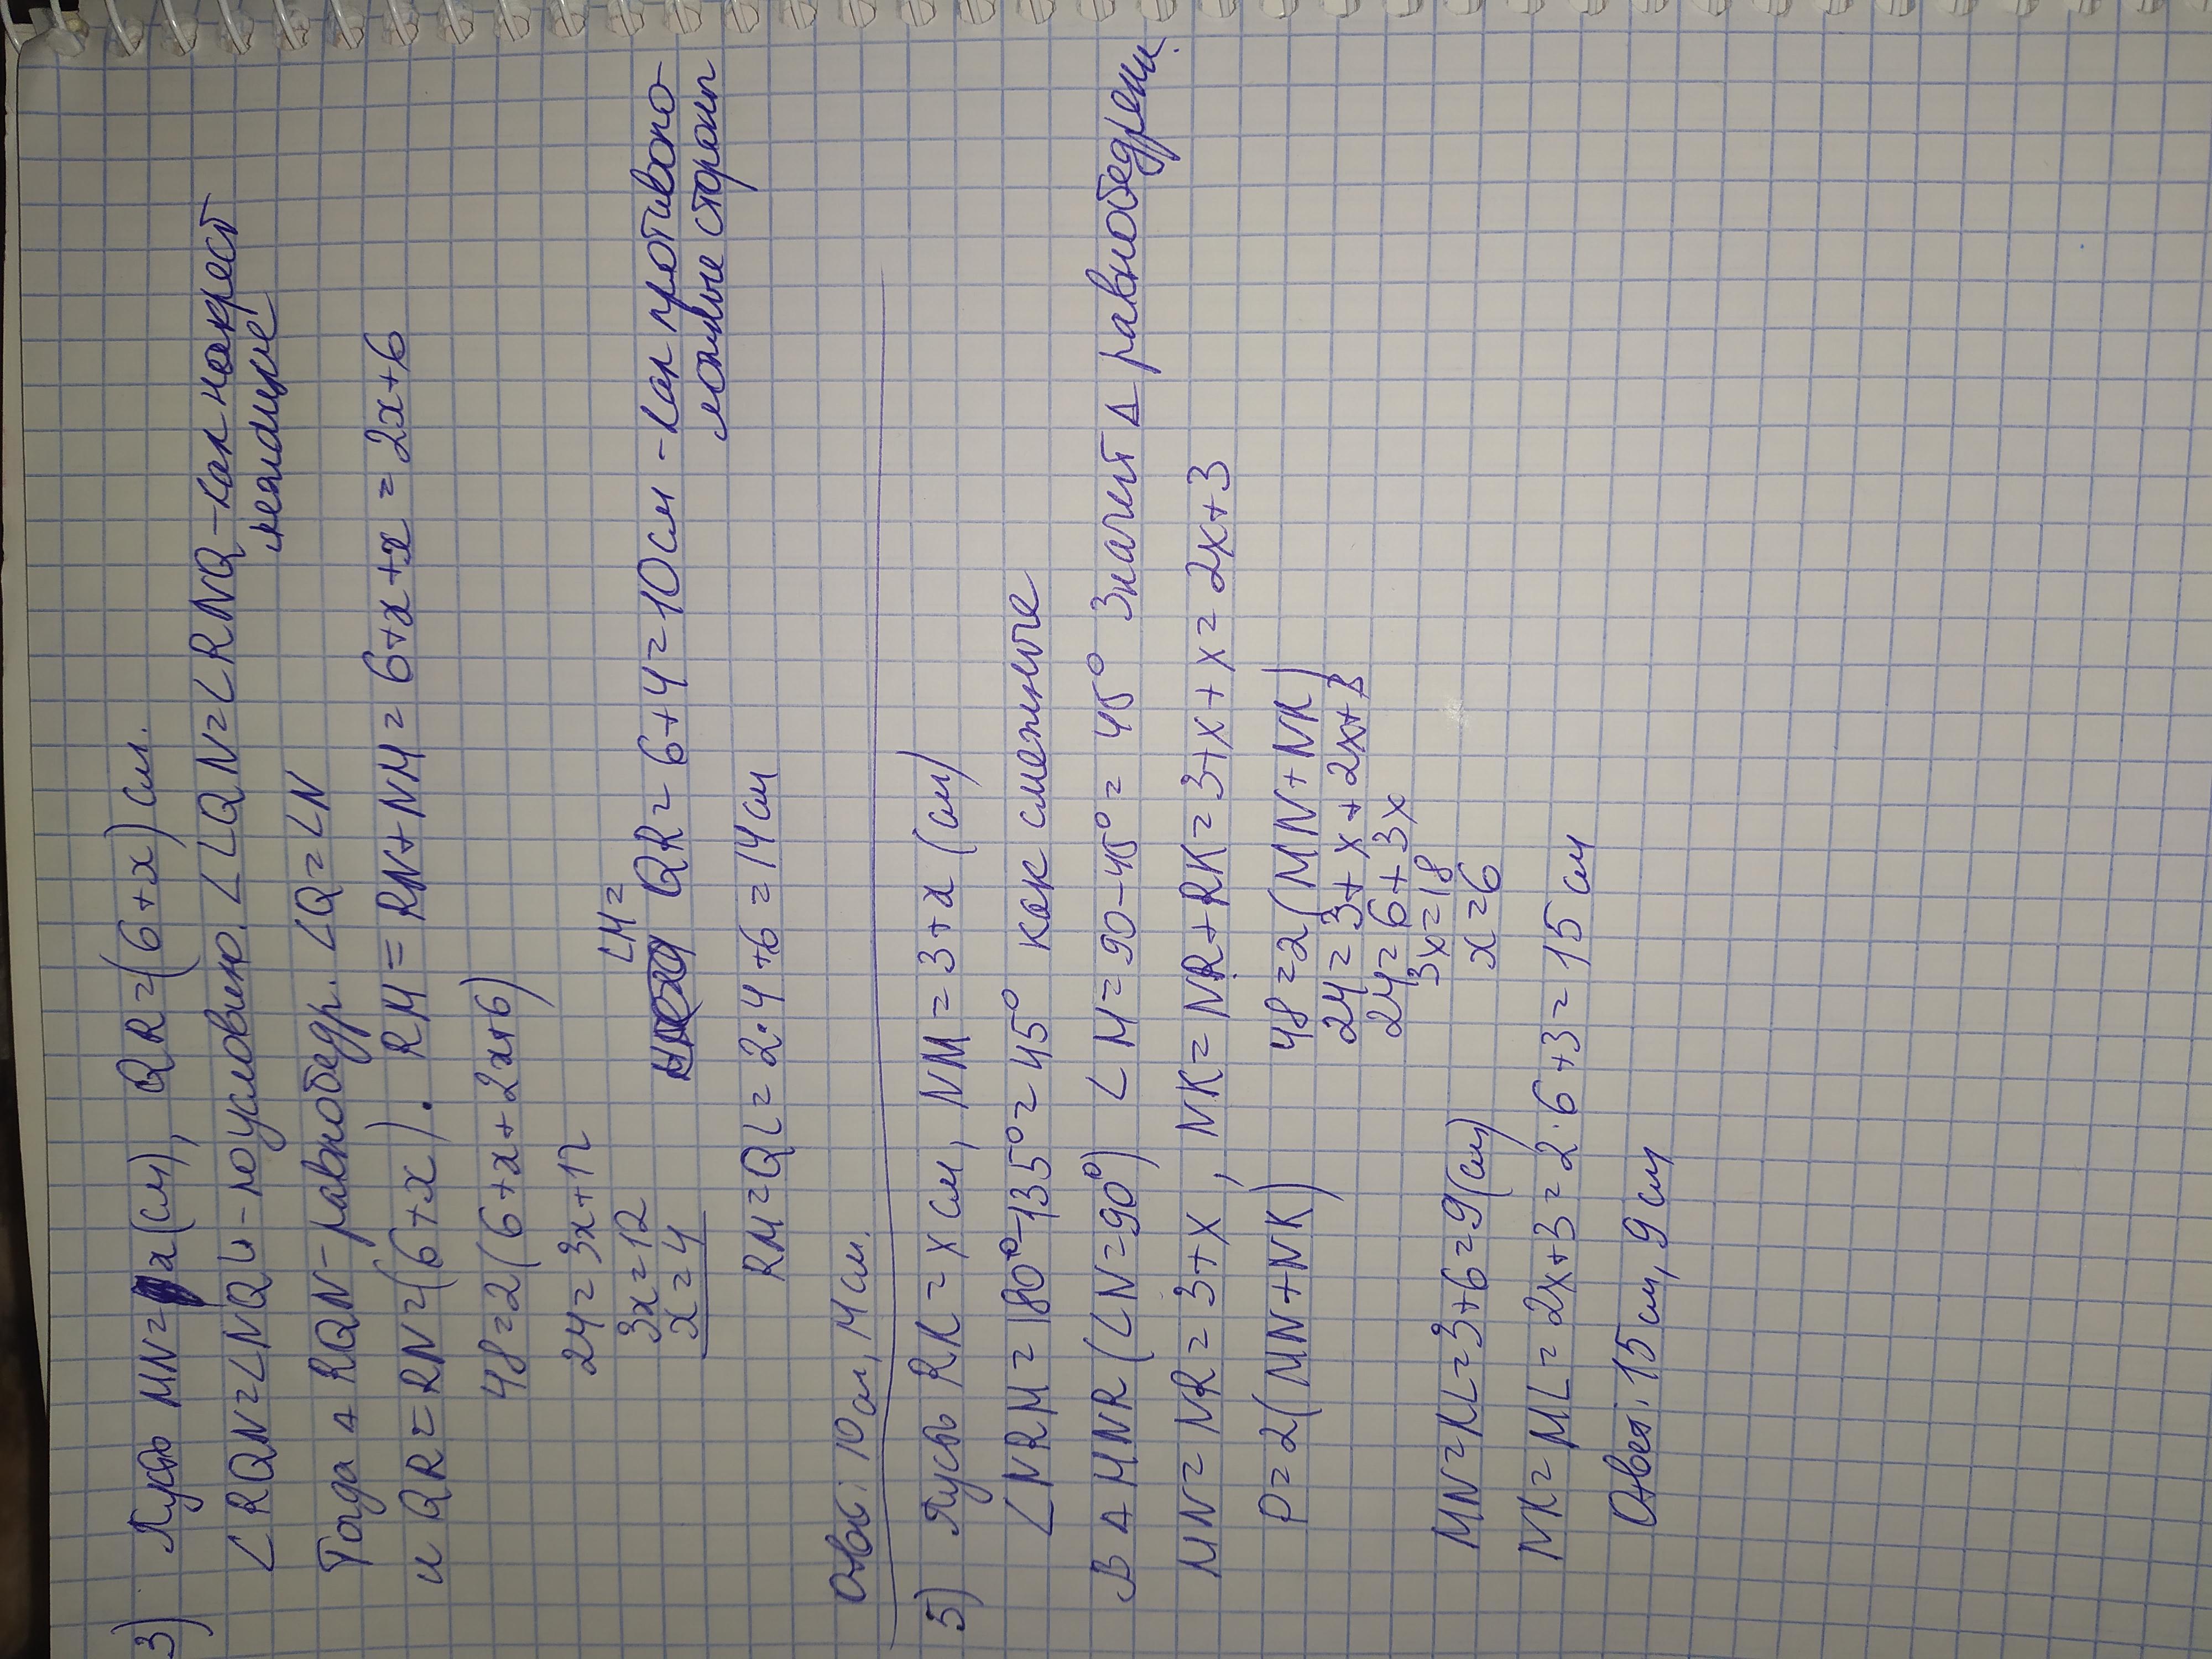 3) Пусть MN = x (см), QR = (6+x) см.
∠RQN = ∠NQL - по условию. ∠LQN = ∠RNQ - как накрест
лежащие
Тогда △ RQN - равнобедр. ∠Q = ∠N
и QR = RN = (6+x). RM = RN + NM = 6+x+x = 2x+6
48 = 2(6+x+2x+6)
24 = 3x+12
3x = 12
x = 4
LM =
QR = 6+4 = 10 см - как противопо-
ложные стороны
RM = QL = 2·4+6 = 14 см
Ответ: 10 см, 14 см.
5) Пусть RK = x см, NM = 3+x (см)
∠NRM = 180°-135° = 45° как смежные
В △ MNR (∠N=90°) ∠M = 90-45° = 45° Значит △ равнобедрен.
MN = NR = 3+x, NK = NR+RK = 3+x+x = 2x+3
P = 2(MN+NK) 48 = 2(MN+NK)
24 = 3+x+2x+3
24 = 6+3x
3x = 18
x = 6
MN = KL = 3+6 = 9 (см)
NK = ML = 2x+3 = 2·6+3 = 15 см
Ответ: 15 см, 9 см